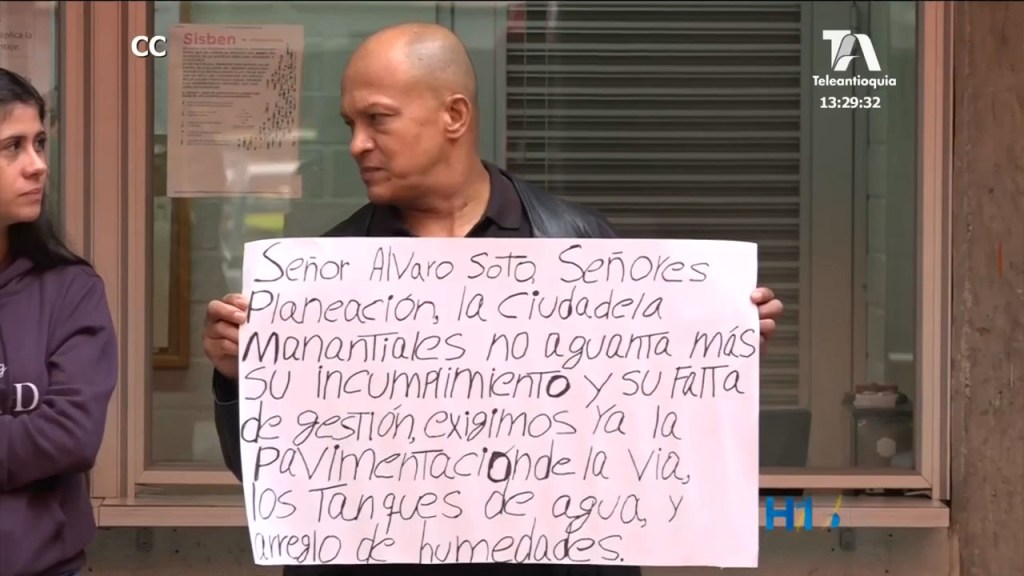 CC
Sisben
TA
Teleantioquia
13:29:32
Señor Alvaro Soto, Señores
Planeación, la Ciudadela
Manantiales no aguanta más
su incumplimiento y su falta
de gestión, exigimos ya la
pavimentación de la via,
los tanques de agua, y
arreglo de humedades.
D
H1